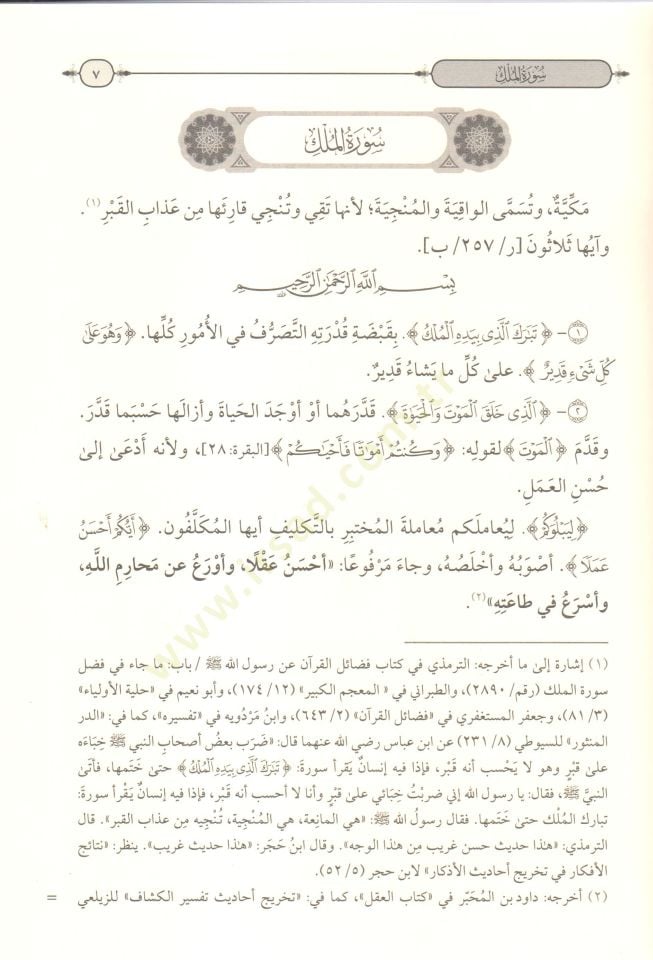 سُورَةُ المُلْكِ
٧
سُورَةُ المُلْكِ
مَكِّيَّةٌ، وتُسَمَّى الواقِيَةَ والمُنْجِيَةَ؛ لأنها تَقِي وتُنْجِي قارِئَها مِن عَذابِ القَبْرِ(١).
وآيُها ثَلاثُونَ [ر/ ٢٥٧/ ب].
بِسْمِ اللَّهِ الرَّحْمَٰنِ الرَّحِيمِ
١- ﴿ تَبَٰرَكَ الَّذِي بِيَدِهِ المُلْكُ ﴾. بِقَبْضَةِ قُدْرَتِهِ التَّصَرُّفُ في الأُمُورِ كُلِّها. ﴿ وَهُوَ عَلَىٰ
كُلِّ شَيْءٍ قَدِيرٌ ﴾. علىٰ كُلِّ ما يَشاءُ قَدِيرٌ.
٢- ﴿ الَّذِي خَلَقَ المَوْتَ وَالْحَيَوٰةَ ﴾. قَدَّرَهُما أوْ أوْجَدَ الحَياةَ وأزالَها حَسْبَما قَدَّرَ.
وقَدَّمَ ﴿ المَوْتَ ﴾ لقولِهِ: ﴿ وَكُنتُمْ أَمْوَٰتًا فَأَحْيَٰكُمْ ﴾ [البقرة: ٢٨]، ولأنه أَدْعَىٰ إلىٰ
حُسْنِ العَمَلِ.
﴿لِيَبْلُوَكُمْ﴾. لِيُعاملَكم مُعاملةَ المُختبِرِ بالتَّكليفِ أيها المُكلَّفُون. ﴿ أَيُّكُمْ أَحْسَنُ
عَمَلًا ﴾. أصْوَبُهُ وأخْلَصُهُ، وجاءَ مَرْفُوعًا: «أحْسَنُ عَقْلًا، وأوْرَعُ عن مَحارِمِ اللَّهِ،
وأسْرَعُ في طاعَتِهِ»(٢).
(١) إشارة إلىٰ ما أخرجه: الترمذي في كتاب فضائل القرآن عن رسول الله ﷺ / باب: ما جاء في فضل
سورة الملك (رقم/ ٢٨٩٠)، والطبراني في « المعجم الكبير» (١٢/ ١٧٤)، وأبو نعيم في «حلية الأولياء»
(٣/ ٨١)، وجعفر المستغفري في «فضائل القرآن» (٢/ ٦٤٣)، وابنُ مَرْدُويه في «تفسيره»، كما في: «الدر
المنثور» للسيوطي (٨/ ٢٣١) عن ابن عباس رضي الله عنهما قال: «ضَرَب بعضُ أصحابِ النبي ﷺ خِبَاءَه
علىٰ قبْرٍ وهو لا يَحْسب أنه قَبْر، فإذا فيه إنسانٌ يَقرأ سورةَ: ﴿ تَبَٰرَكَ الَّذِي بِيَدِهِ المُلْكُ ﴾ حتىٰ ختَمها، فأتىٰ
النبيَّ ﷺ، فقال: يا رسول الله إني ضربْتُ خِبَائي علىٰ قبْرٍ وأنا لا أحسب أنه قَبْر، فإذا فيه إنسانٌ يَقْرأ سورةَ:
تبارك المُلْك حتىٰ ختَمها. فقال رسولُ الله ﷺ: «هي المانِعة، هي المُنْجِية، تُنْجِيه مِن عذاب القبر». قال
الترمذي: «هٰذا حديث حسن غريب مِن هٰذا الوجه». وقال ابنُ حَجَر: «هٰذا حديث غريب». ينظر: «نتائج
الأفكار في تخريج أحاديث الأذكار» لابن حجر (٥/ ٥٢).
(٢) أخرجه: داود بن المُحَبّر في «كتاب العقل»، كما في: «تخريج أحاديث تفسير الكشاف» للزيلعي =
www.irsad.com.tr